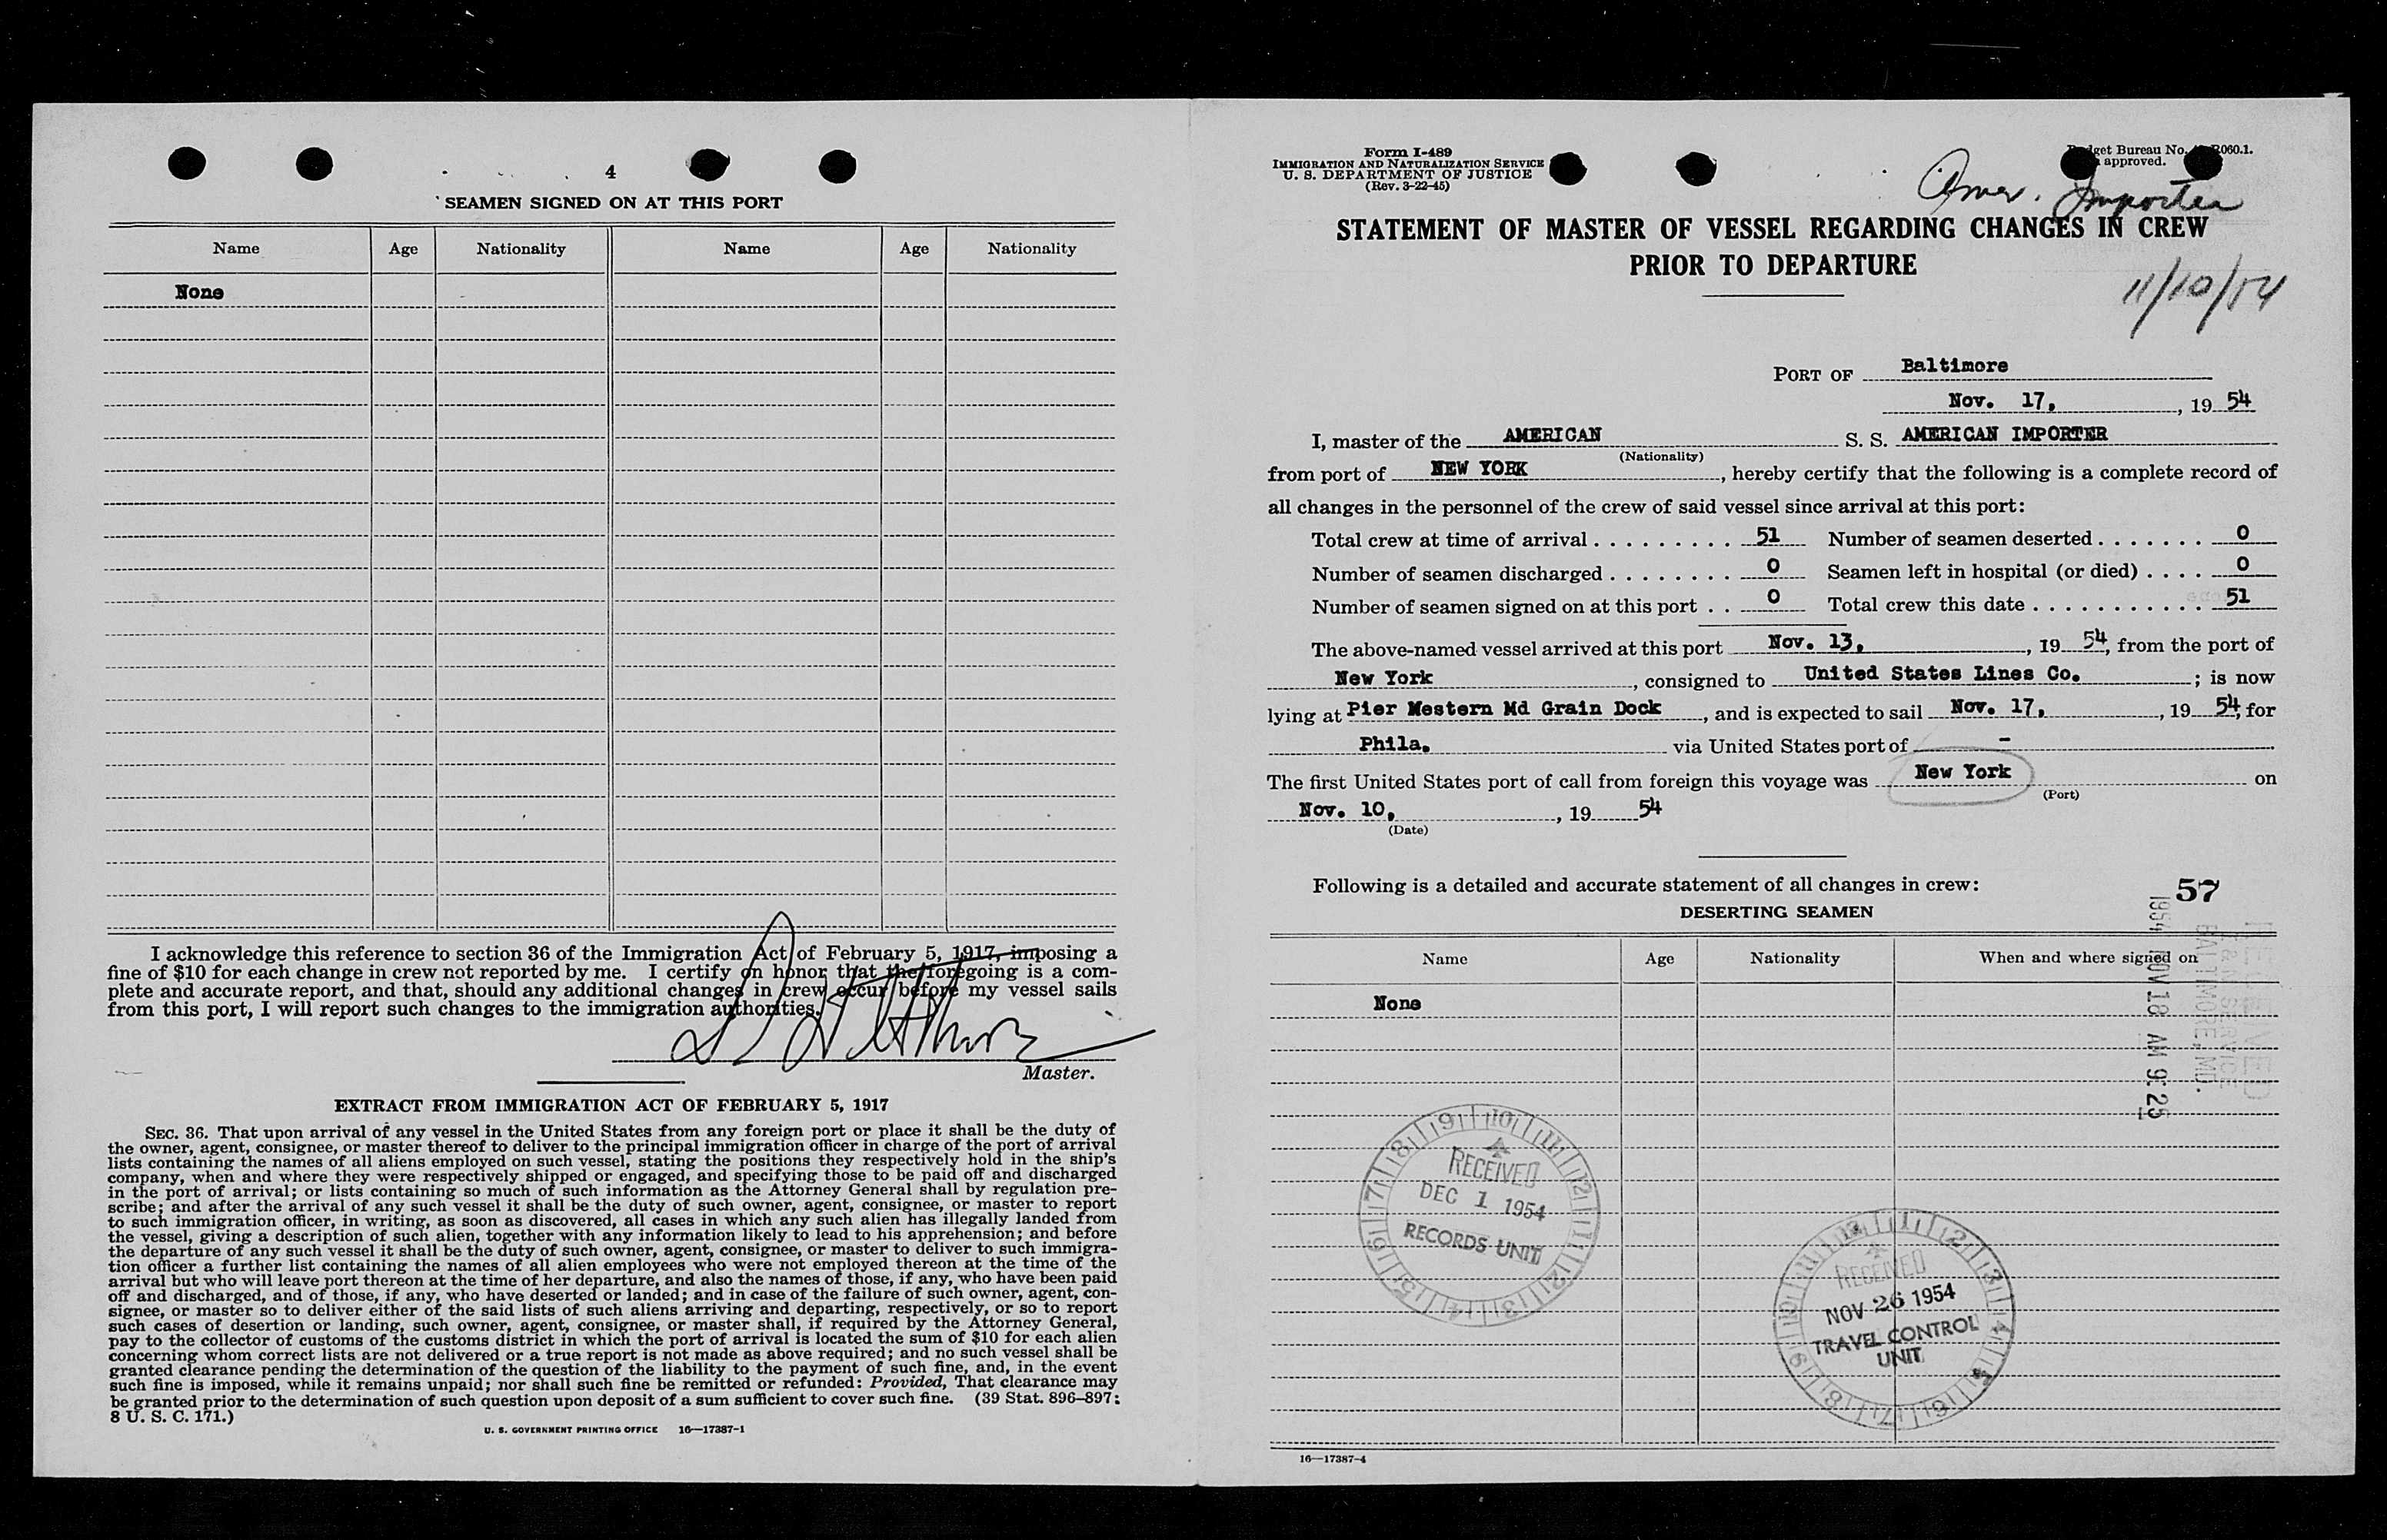 4
SEAMEN SIGNED ON AT THIS PORT
Name Age Nationality Name Age Nationality
None
I acknowledge this reference to section 36 of the Immigration Act of February 5, 1917, imposing a
fine of $10 for each change in crew not reported by me. I certify on honor that the foregoing is a com-
plete and accurate report, and that, should any additional changes in crew occur before my vessel sails
from this port, I will report such changes to the immigration authorities.
Master.
EXTRACT FROM IMMIGRATION ACT OF FEBRUARY 5, 1917
SEC. 36. That upon arrival of any vessel in the United States from any foreign port or place it shall be the duty of
the owner, agent, consignee, or master thereof to deliver to the principal immigration officer in charge of the port of arrival
lists containing the names of all aliens employed on such vessel, stating the positions they respectively hold in the ship's
company, when and where they were respectively shipped or engaged, and specifying those to be paid off and discharged
in the port of arrival; or lists containing so much of such information as the Attorney General shall by regulation pre-
scribe; and after the arrival of any such vessel it shall be the duty of such owner, agent, consignee, or master to report
to such immigration officer, in writing, as soon as discovered, all cases in which any such alien has illegally landed from
the vessel, giving a description of such alien, together with any information likely to lead to his apprehension; and before
the departure of any such vessel it shall be the duty of such owner, agent, consignee, or master to deliver to such immigra-
tion officer a further list containing the names of all alien employees who were not employed thereon at the time of the
arrival but who will leave port thereon at the time of her departure, and also the names of those, if any, who have been paid
off and discharged, and of those, if any, who have deserted or landed; and in case of the failure of such owner, agent, con-
signee, or master so to deliver either of the said lists of such aliens arriving and departing, respectively, or so to report
such cases of desertion or landing, such owner, agent, consignee, or master shall, if required by the Attorney General,
pay to the collector of customs of the customs district in which the port of arrival is located the sum of $10 for each alien
concerning whom correct lists are not delivered or a true report is not made as above required; and no such vessel shall be
granted clearance pending the determination of the question of the liability to the payment of such fine, and, in the event
such fine is imposed, while it remains unpaid; nor shall such fine be remitted or refunded: Provided, That clearance may
be granted prior to the determination of such question upon deposit of a sum sufficient to cover such fine. (39 Stat. 896–897;
8 U. S. C. 171.)
U. S. GOVERNMENT PRINTING OFFICE 16—17387-1
Form I-489
IMMIGRATION AND NATURALIZATION SERVICE
U. S. DEPARTMENT OF JUSTICE
(Rev. 3-22-45)
Bureau No. 060.1.
approved.
Amer. Importer
STATEMENT OF MASTER OF VESSEL REGARDING CHANGES IN CREW
PRIOR TO DEPARTURE
11/10/54
PORT OF Baltimore
Nov. 17, , 19 54
I, master of the AMERICAN S. S. AMERICAN IMPORTER
(Nationality)
from port of NEW YORK , hereby certify that the following is a complete record of
all changes in the personnel of the crew of said vessel since arrival at this port:
Total crew at time of arrival . . . . . . . . . . 51 Number of seamen deserted . . . . . . . 0
Number of seamen discharged . . . . . . . . 0 Seamen left in hospital (or died) . . . . 0
Number of seamen signed on at this port . . 0 Total crew this date . . . . . . . . . . . 51
The above-named vessel arrived at this port Nov. 13, , 19 54, from the port of
New York , consigned to United States Lines Co. ; is now
lying at Pier Western Md Grain Dock , and is expected to sail Nov. 17, , 19 54, for
Phila. via United States port of –
The first United States port of call from foreign this voyage was New York on
(Port)
Nov. 10, , 19 54
(Date)
Following is a detailed and accurate statement of all changes in crew:
57
DESERTING SEAMEN
Name Age Nationality When and where signed on
None
1954 NOV 18 AM 9:25
RECEIVED
SERVICE
BALTIMORE, MD.
9 10 11 12 1 2 3 4 5 6 7 8
RECEIVED
DEC 1 1954
RECORDS UNIT
12 1 2 3 4 5 6 7 8 9 10 11
RECEIVED
NOV 26 1954
TRAVEL CONTROL
UNIT
16—17387-4